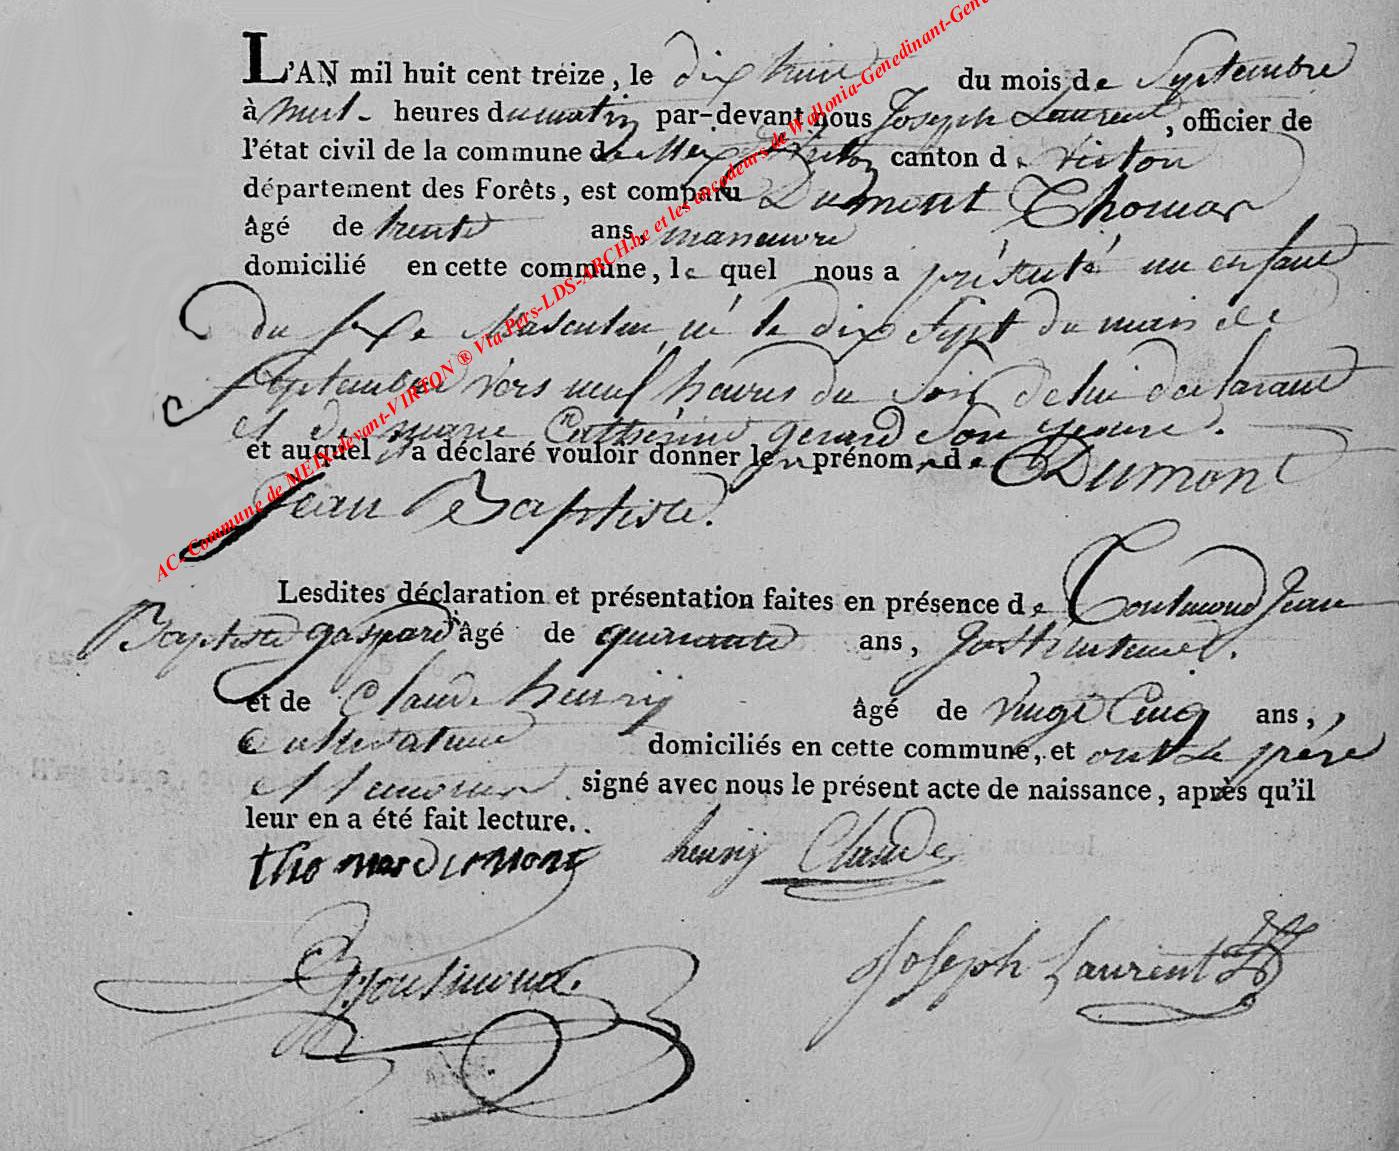 L'AN mil huit cent treize, le dix huit du mois de Septembre
à neuf heures du matin par-devant nous Joseph Laurent, officier de
l'état civil de la commune de Meix dt Virton canton de Virton
département des Forêts, est comparu Dumont Thomas
âgé de trente ans, manœuvre
domicilié en cette commune, le quel nous a présenté un enfant
du sexe Masculin né le dix Sept du mois de
Septembre vers neuf heures du Soir de lui declarant
et de marie Catherine gerard Son epouse.
et auquel il a déclaré vouloir donner les prénoms de Dumont
Jean Baptiste.
Lesdites déclaration et présentation faites en présence de Jean
Baptiste gaspard âgé de quarante ans,
et de Claude henrij âgé de vingt Cinq ans,
Cultivateur domiciliés en cette commune, et ont le père
et temoins signé avec nous le présent acte de naissance, après qu'il
leur en a été fait lecture.
thomas dumont henrij Claude
Joseph Laurent
AC. Commune de MEIX-devant-VIRTON ® Via Pers-LDS-ARCH.be et les encodeurs de Wallonia-Genedinant-Gene